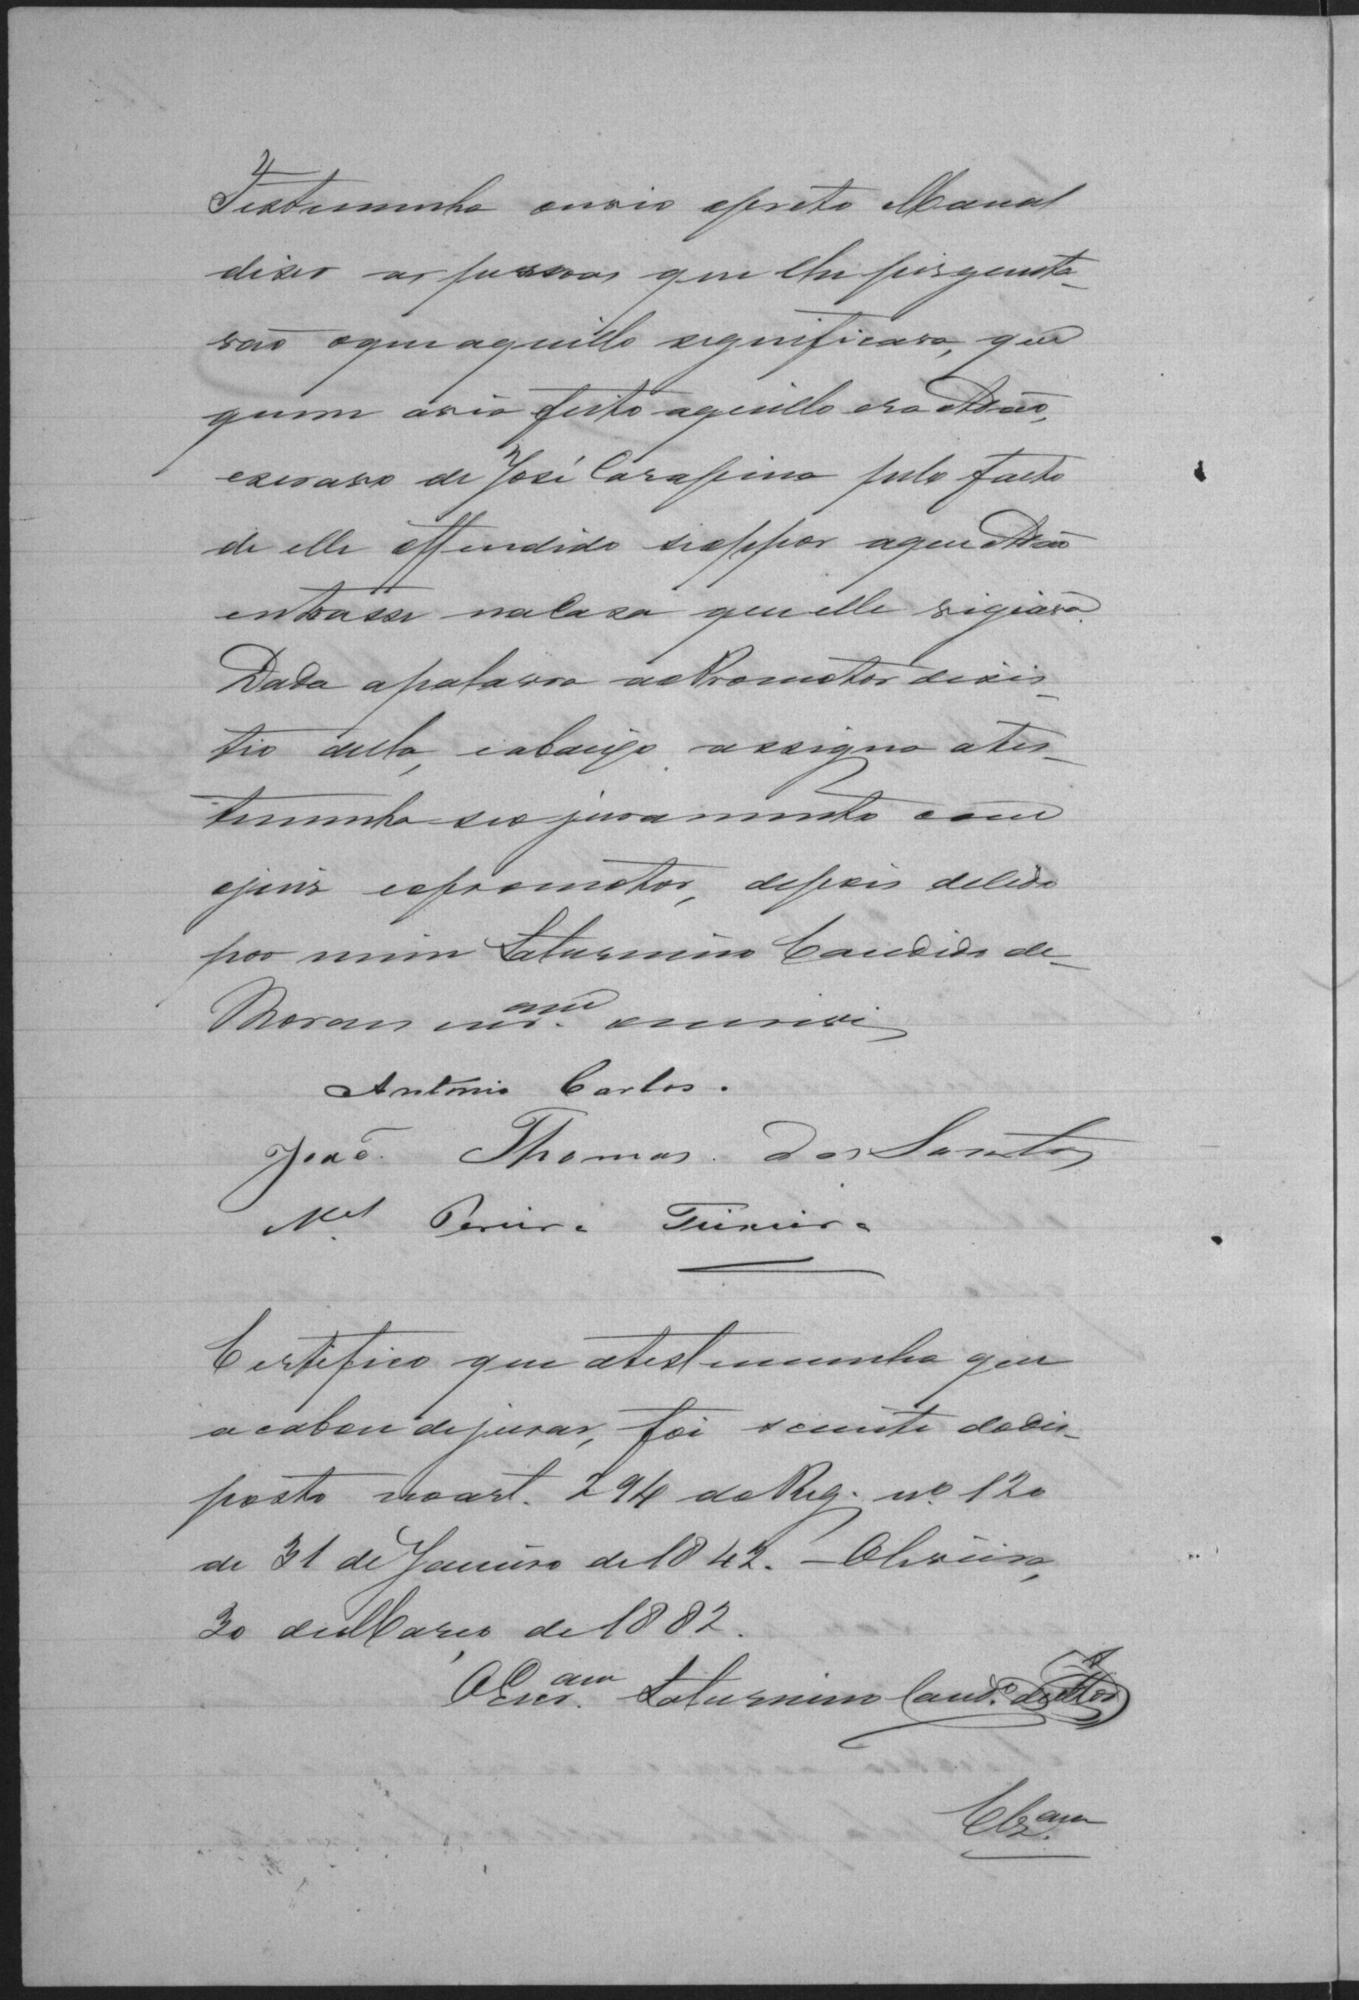 Testemunha ouvio opreto Manoel
diser as pessoas que lhe pergunta-
rão oque aquillo significava, que
quem avia feito aquillo era Adão,
escravo de José Carapina pelo facto
de elle offendido se oppor a que Adão
entrasse na Casa que elle vigiava.
Dada apalavra ao Promotor desis-
tio della, eabaixo assigna ates-
temunha seo juramento com
ojuiz eopromotor, depois delido
por mim Saturnino Candido de
Moraes escr.am oescrivi
Antonio Carlos.
João Thomas dos Santos
M.el Pereira Teixeira
Certifico que atestemunha que
acabou dejurar, foi sciente dodis-
posto noart. 294 do Reg. nº 120
de 31 de Janeiro de 1842. - Oliveira,
30 de Março de 1882.
O Escr.am Saturnino Cand.o de Mor
Clz.am